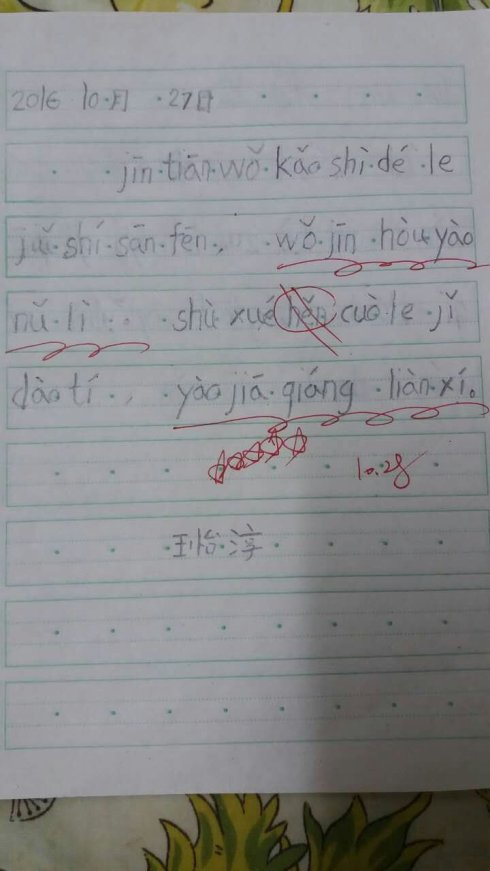 2016 10月 27日
jīn tiān wǒ kǎo shì dé le
jǔ shí sān fēn, wǒ jīn hòu yào
nǔ lì shù xué hěn cuò le jǐ
dào tí, yào jiā qiáng liàn xí。
10.28